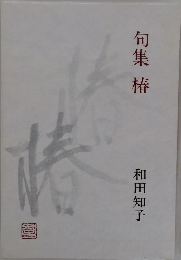 句集 椿
和田知子
椿
椿